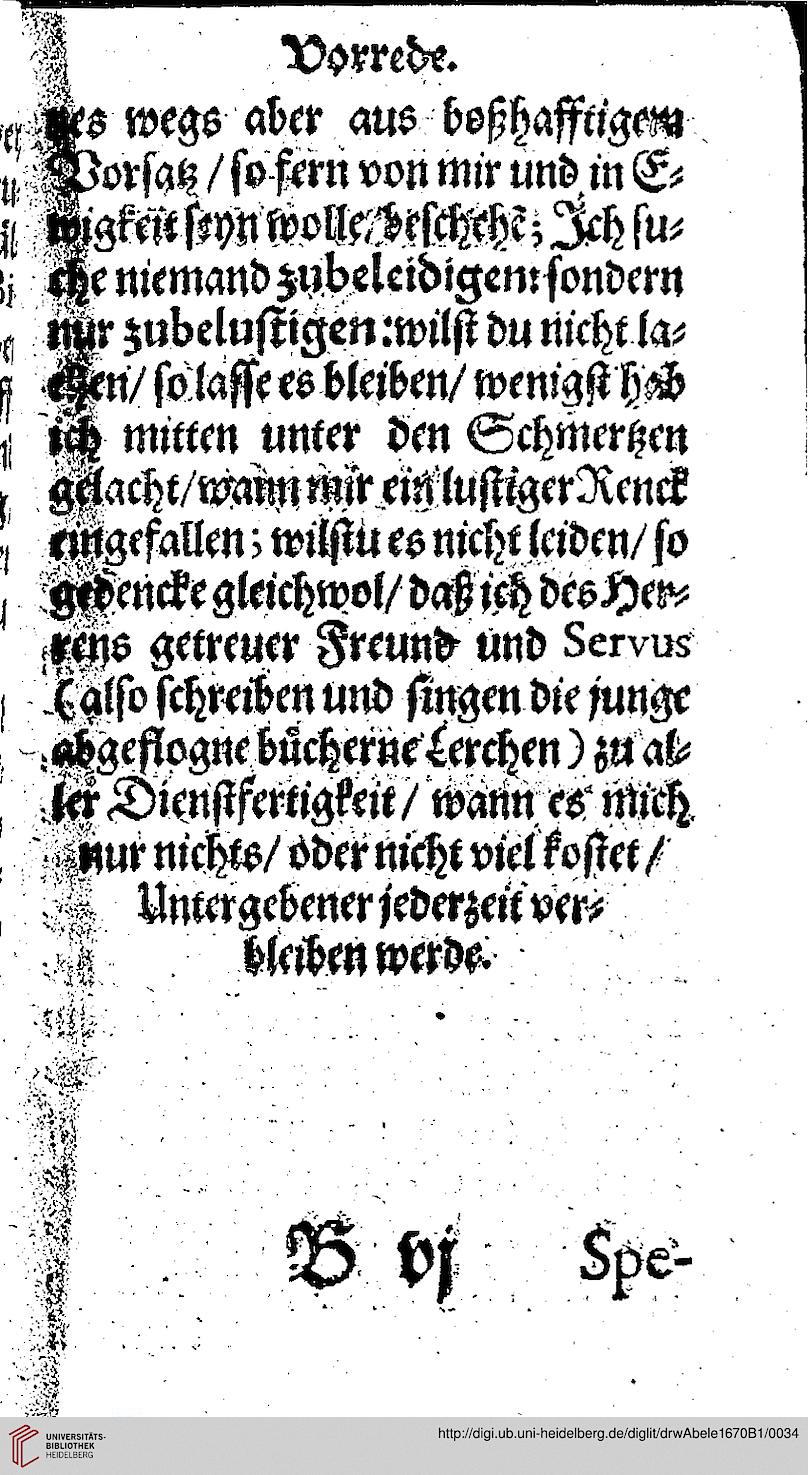 Vorrede.
nes wegs aber aus boßhafftigem
Vorsatz / so fern von mir und in E⸗
wigkeit seyn wolle / beschehẽ; Ich su⸗
che niemand zubeleidigen: sondern
nur zubelustigen: wilst du nicht la⸗
chen / so lasse es bleiben / wenigst hab
ich mitten unter den Schmertzen
gelacht / wann mir ein lustiger Renck
eingefallen; wilstu es nicht leiden / so
gedencke gleichwol / daß ich des Her⸗
rens getreuer Freund und Servus
( also schreiben und singen die junge
abgeflogne bücherne Lerchen ) zu al⸗
ler Dienstfertigkeit / wann es mich
nur nichts / oder nicht viel kostet /
Untergebener jederzeit ver⸗
bleiben werde.
B vj Spe-
UNIVERSITÄTS-
BIBLIOTHEK
HEIDELBERG
http://digi.ub.uni-heidelberg.de/diglit/drwAbele1670B1/0034